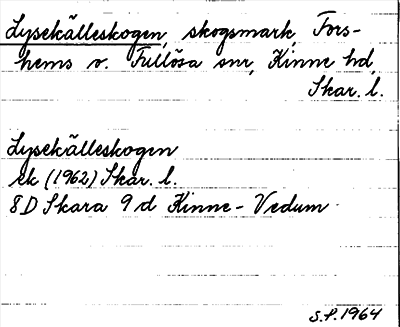 Lysekälleskogen, skogsmark, Fors-
hems o. Fullösa snr, Kinne hd,
Skar. l.
Lysekälleskogen
ek (1962) Skar. l.
8D Skara 9 d Kinne-Vedum
S.P. 1964